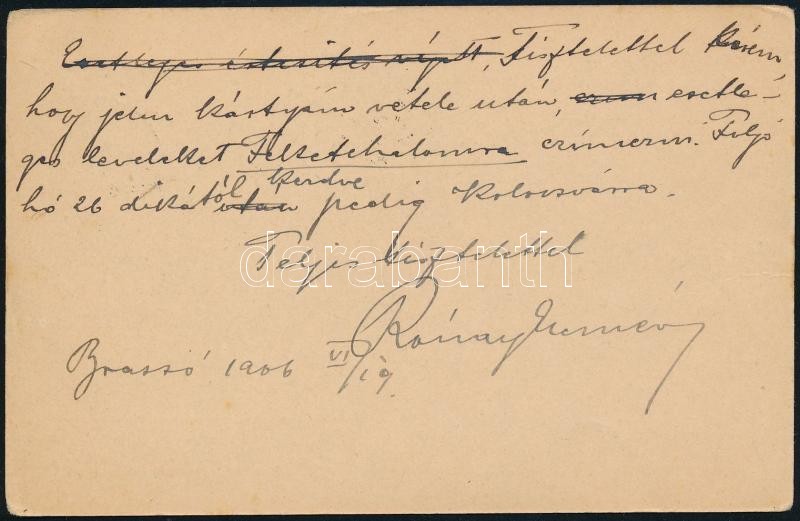 Esetleges értesítés végett, Tisztelettel kérem,
hogy jelen kártyám vétele után, esetlé-
ges leveleket Feketehalomra czímezni. Folyó
hó 26 dikától kezdve pedig Kolozsvárra.
Teljes tisztelettel
darabanth
Rónay
Brassó 1906 VI/19.